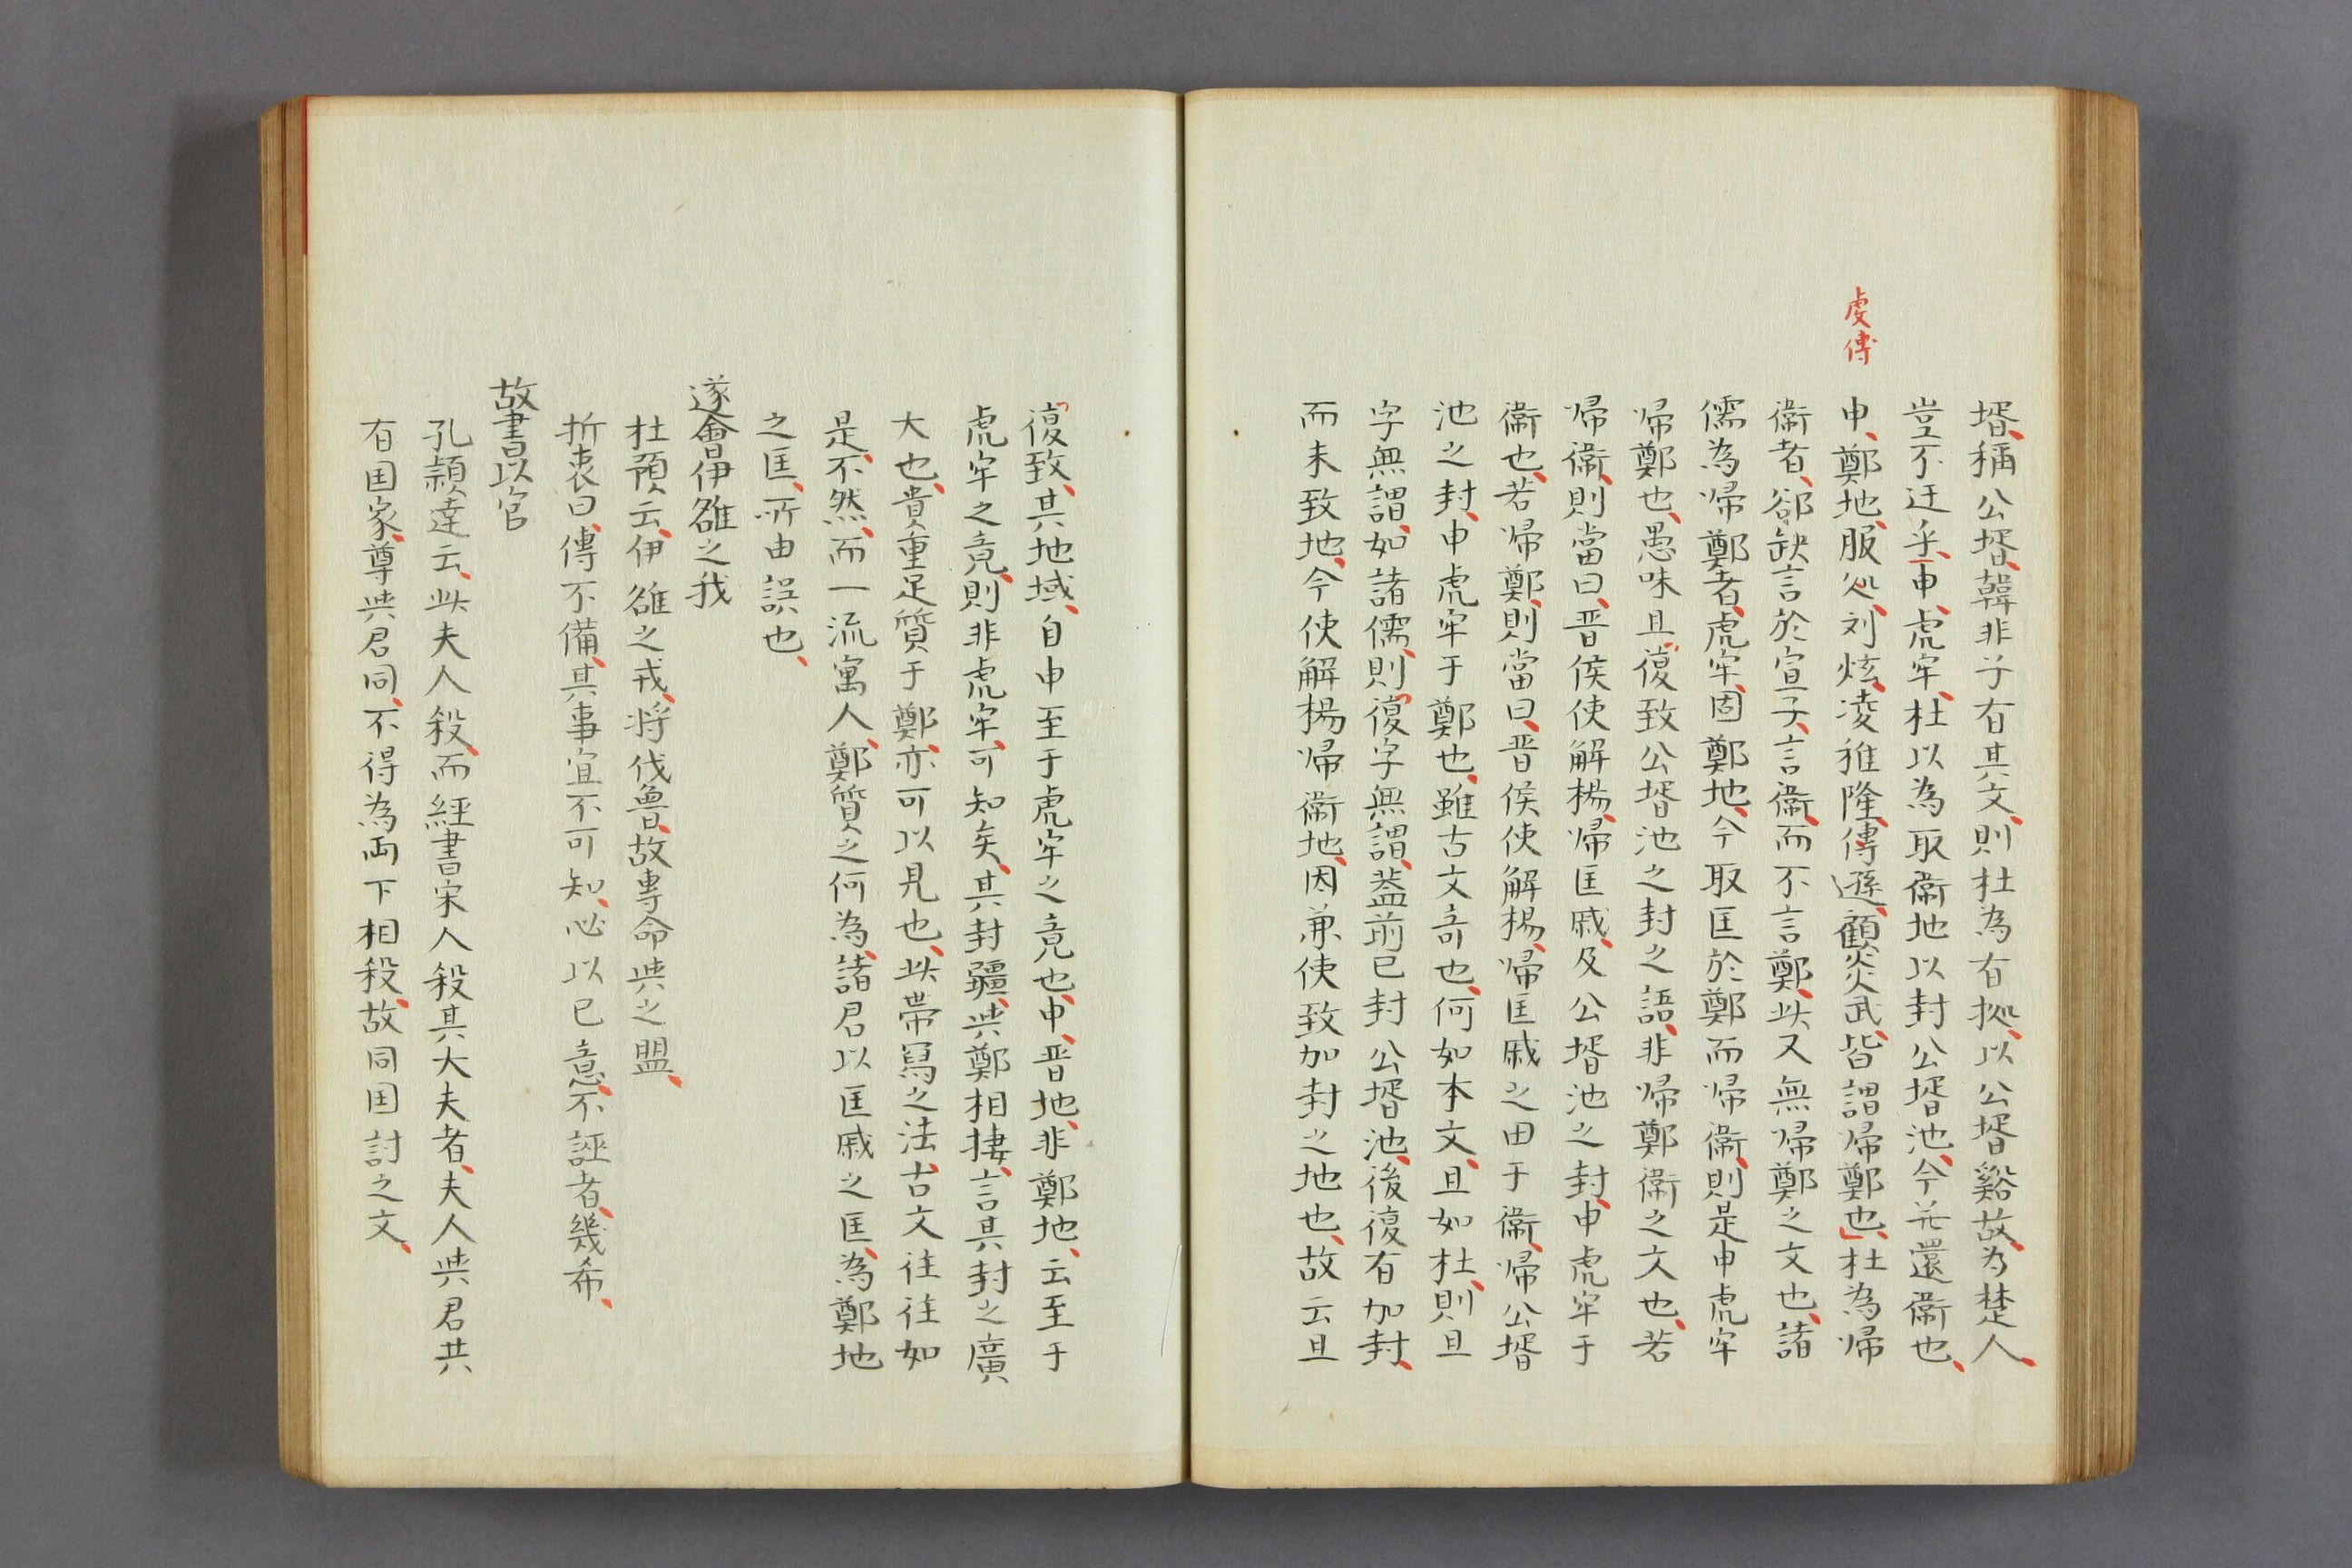 壻、稱公壻、韓非子有其文、則杜為有拠、以公壻谿故、為楚人、
豈不迂乎、申、虎牢、杜以為取衛地以封公壻池、今並還衛也、
虔傳
申、鄭地、服処、刘炫、凌稚隆、傅遜、顧炎武、皆謂帰鄭也、杜為帰
衛者、郤缺言於宣子、言衛、而不言鄭、此又無帰鄭之文也、諸
儒為帰鄭者、虎牢、固鄭地、今取匡於鄭而帰衛、則是申虎牢
帰鄭也、愚味且復致公壻池之封之語、非帰鄭衛之文也、若
帰衛、則當曰、晋侯使解楊、帰匡戚、及公壻池之封、申虎牢于
衛也、若帰鄭、則當曰、晋侯使解楊、帰匡戚之田于衛、帰公壻
池之封、申虎牢于鄭也、雖古文奇也、何如本文、且如杜、則且
字無謂、如諸儒、則復字無謂、蓋前已封公壻池、後復有加封、
而未致地、今使解楊帰衛地、因兼使致加封之地也、故云且
復致、其地域、自申至于虎牢之竟也、申、晋地、非鄭地、云至于
虎牢之竟、則非虎牢、可知矣、其封疆、与鄭相捿、言其封之廣
大也、貴重足質于鄭、亦可以見也、此帯冩之法、古文往往如
是、不然、而一流寓人、鄭質之何為、諸君以匡戚之匡、為鄭地
之匡、所由誤也、
遂會伊雒之我
杜預云、伊雒之戎、将伐魯、故專命与之盟、
折衷曰、傳不備、其事宜不可知、必以已意、不誣者、幾希、
故書以官
孔穎達云、此夫人殺、而経書宋人殺其大夫者、夫人与君共
有国家、尊与君同、不得為両下相殺、故同国討之文、